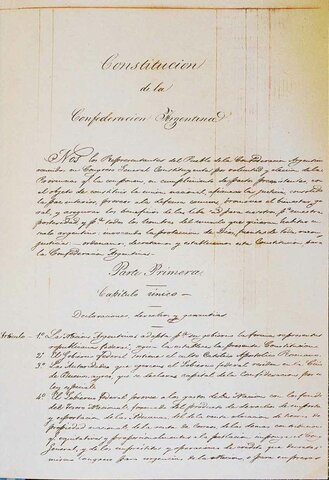 Constitucion
de la
Confederacion Argentina
Nos los Representantes del Pueblo de la Confederacion Argentina
reunidos en Congreso General Constituyente por voluntad y eleccion de las
Provincias que la componen, en cumplimiento de pactos preexistentes con
el objeto de constituir la union nacional, afianzar la justicia, consolidar
la paz interior, proveer a la defensa comun, promover el bienestar gene-
ral, y asegurar los beneficios de la libertad para nosotros, p.ª nuestra
posteridad y p.ª todos los hombres del mundo que quieran habitar en el
suelo argentino; invocando la proteccion de Dios, fuente de toda razon y
justicia: ordenamos, decretamos y establecemos esta Constitucion para
la Confederacion Argentina.
Parte Primera
Capitulo unico
Declaraciones, derechos y garantias
Articulo 1º La Nacion Argentina adopta p.ª su gobierno la forma representativa
republicana federal, segun la establece la presente Constitucion.
2º El Gobierno Federal sostiene el culto Catolico Apostolico Romano.
3º Las Autoridades que ejercen el Gobierno federal residen en la Ciudad
de Buenos Ayres, que se declara capital de la Confederacion por una
ley especial.
4º El Gobierno Federal provee a los gastos de la Nacion con los fondos
del Tesoro Nacional, formado del producto de derechos de importacion
y esportacion de las Aduanas, del de la venta o locacion de tierras de
propiedad nacional, de la renta de Correos, de las demas contribuciones
que equitativa y proporcionalmente a la poblacion imponga el Congreso
General, y de los emprestitos y operaciones de credito que decrete el
mismo Congreso para urgencias de la Nacion, o para empresas